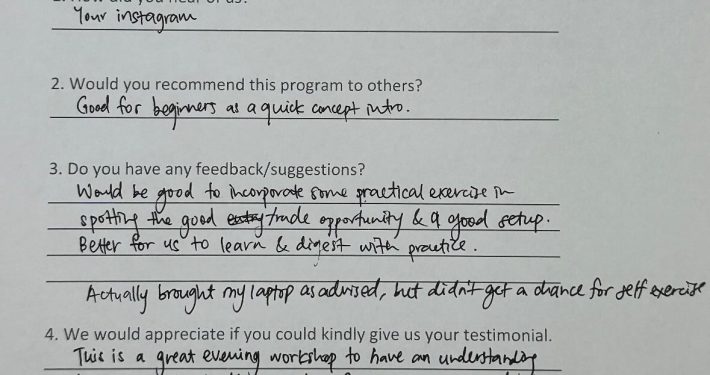 1. How did you hear of us?
Your instagram
2. Would you recommend this program to others?
Good for beginners as a quick concept intro.
3. Do you have any feedback/suggestions?
Would be good to incorporate some practical exercise in
spotting the good entry trade opportunity & a good setup.
Better for us to learn & digest with practice.
Actually brought my laptop as advised, but didn't get a chance for self exercise
4. We would appreciate if you could kindly give us your testimonial.
This is a great evening workshop to have an understanding